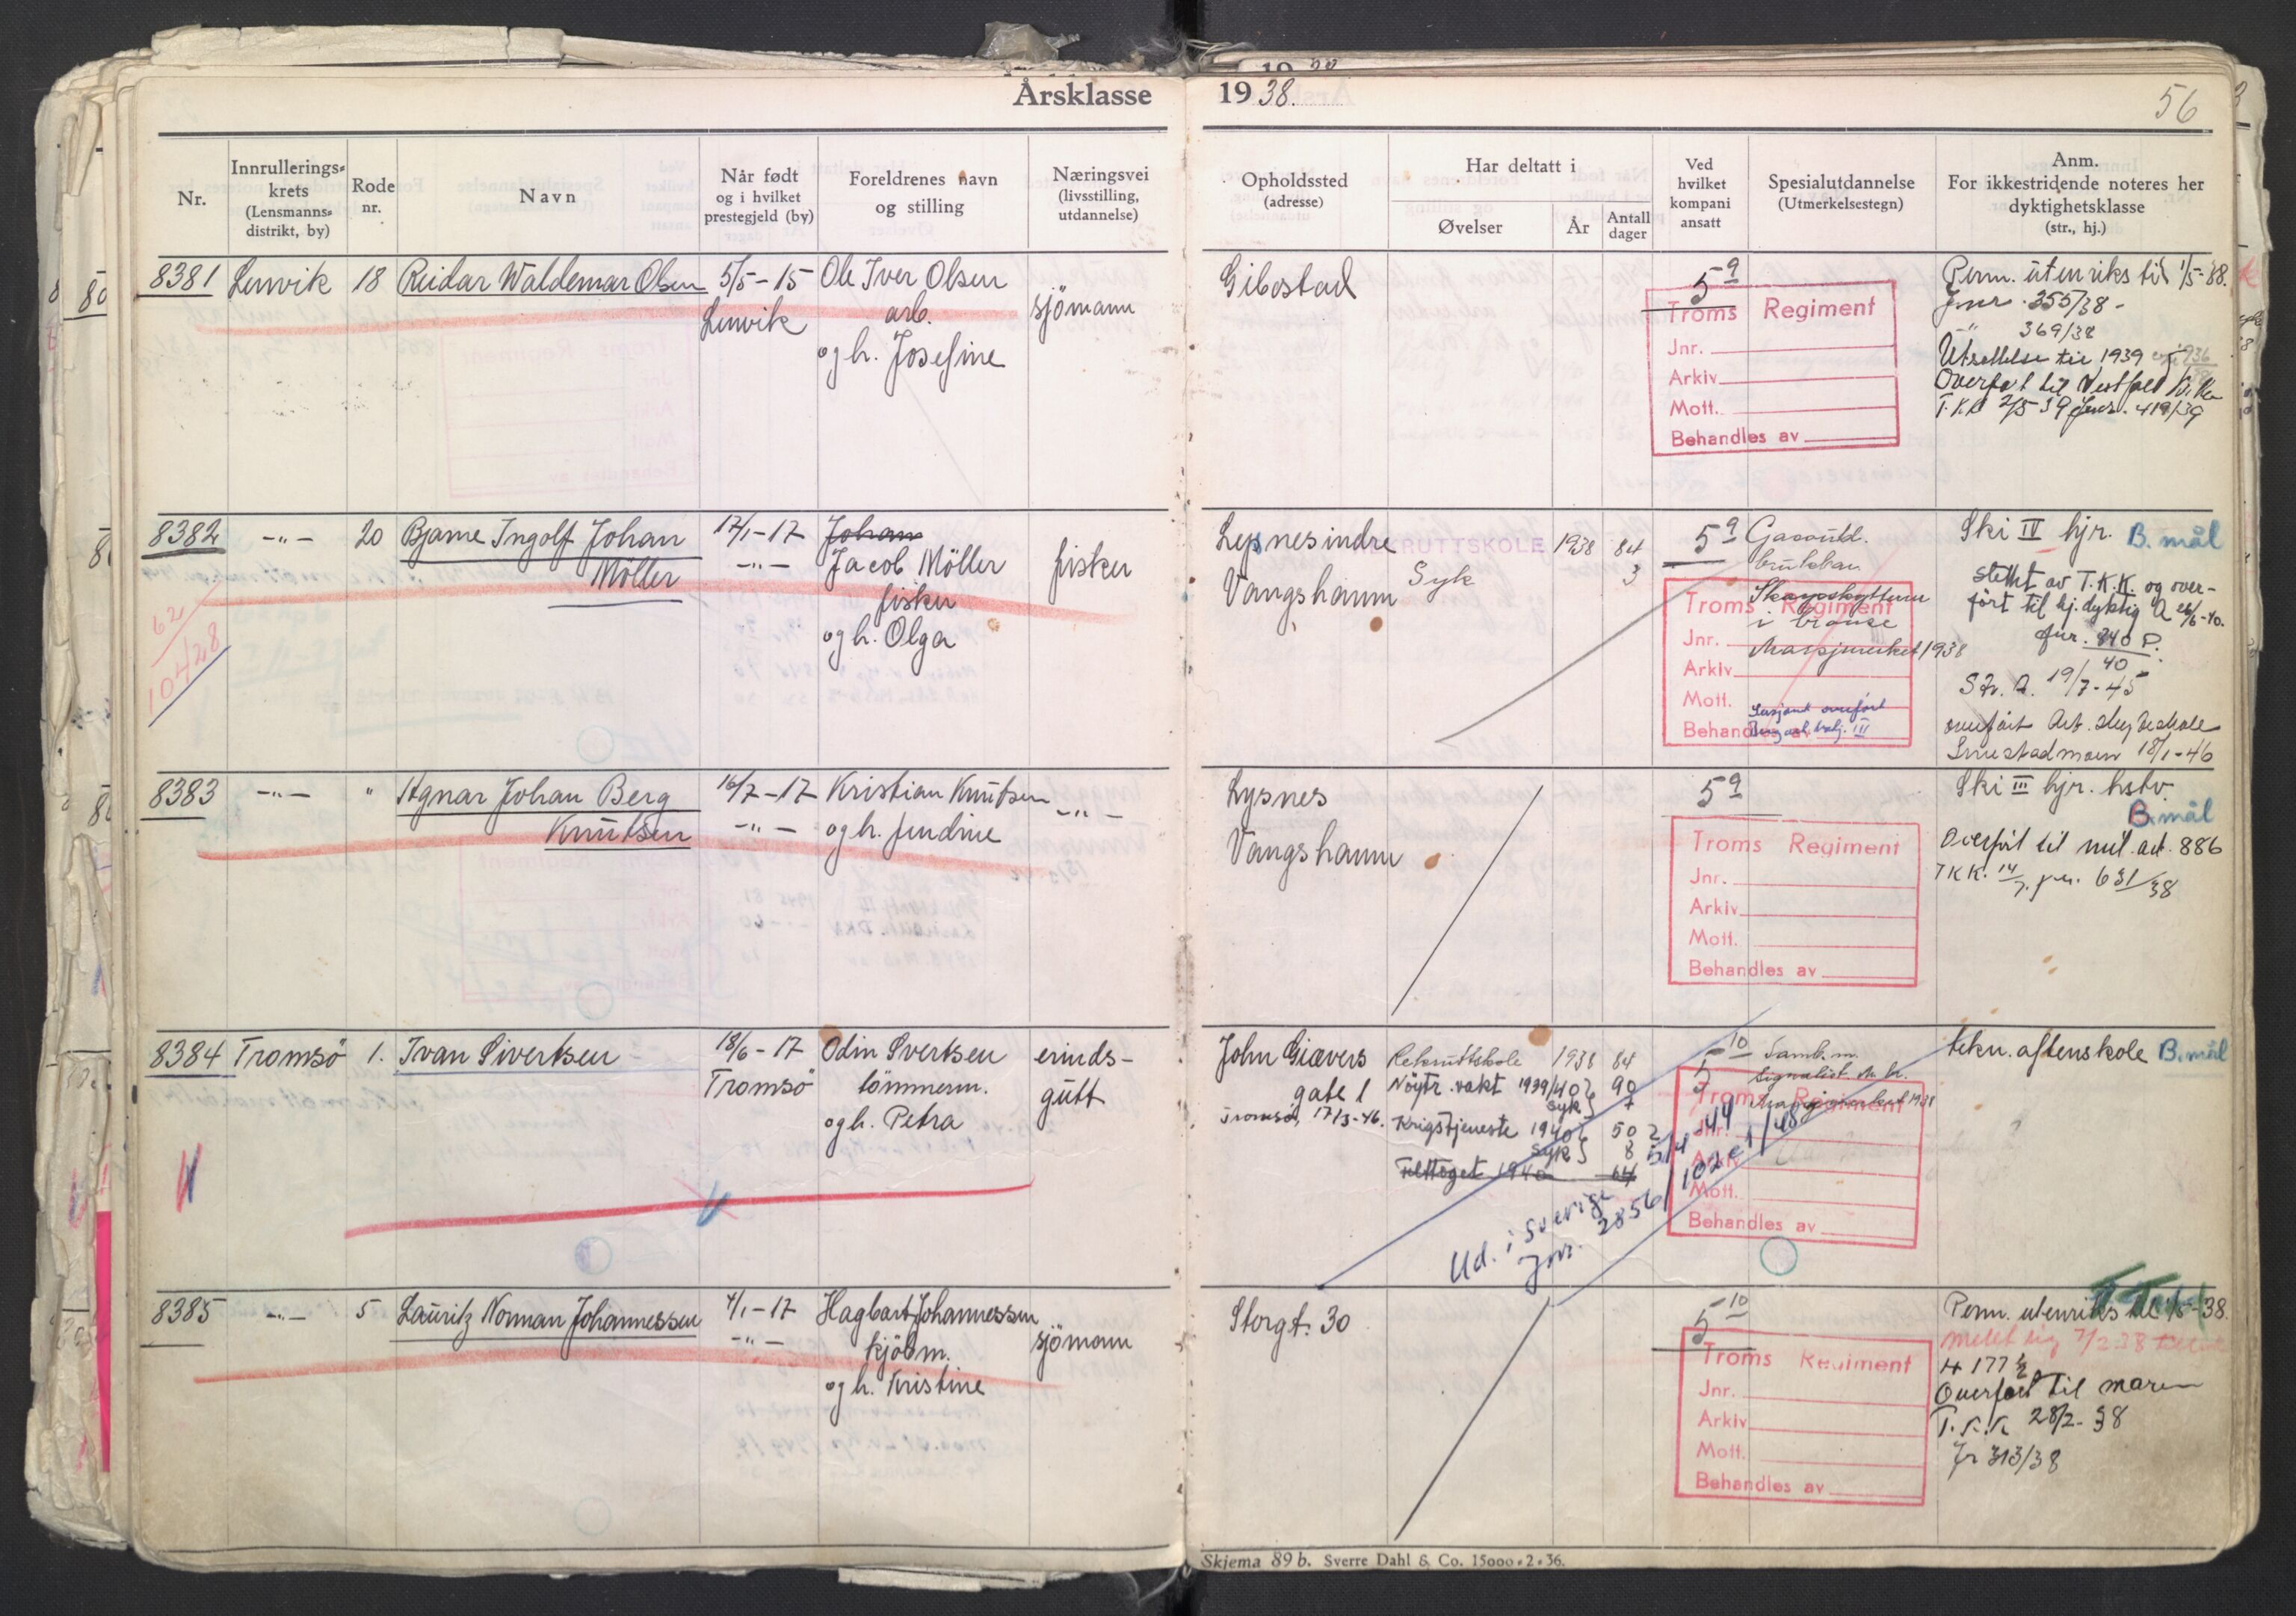 Årsklasse 1938.
56
Nr.
Innrullerings-
krets
(Lensmanns-
distrikt, by)
Rode
nr.
Navn
Når født
og i hvilket
prestegjeld (by)
Foreldrenes navn
og stilling
Næringsvei
(livsstilling,
utdannelse)
Opholdssted
(adresse)
Har deltatt i
Øvelser
År
Antall
dager
Ved
hvilket
kompani
ansatt
Spesialutdannelse
(Utmerkelsestegn)
Anm.
For ikkestridende noteres her
dyktighetsklasse
(str., hj.)
8381 Lenvik 18 Reidar Waldemar Olsen 5/5-15 Ole Iver Olsen
Lenvik arb. sjömann
og h. Josefine
Gibostad
5 9
Troms Regiment
Jnr.
Arkiv
Mott.
Behandles av
Perm. utenriks til 1/5-38.
Jnr. 355/38-
-"- 369/38
Utsettelse til 1939
Overført til Vestfold
T.K.K 2/5 39 Jnr. 419/39
8382 -"- 20 Bjarne Ingolf Johan 17/1-17 Johan
Möller -"- Jacob Möller fisker
fisker
og h. Olga
62
10428
Lysnesindre
Vangshamn
REKRUTTSKOLE 1938 84
Syk 3
5 9
Gassutd.
brukbar.
Skarpskytterm
i bronse
Marsjmerket 1938
Troms Regiment
Jnr.
Arkiv
Mott.
Behandles av
Sersjant overført
Ski IV hjr. B. mål
slettet av T.K.K. og over-
ført til hj. dyktig A 26/6-40.
Jnr. 840 P.
40
Str. A. 19/7-45
overført
18/1-46
8383 -"- " Agnar Johan Berg 16/7-17 Kristian Knutsen -"-
Knutsen -"- og h. Jendine
Lysnes
Vangshamn
5 9
Troms Regiment
Jnr.
Arkiv
Mott.
Behandles av
Ski III hjr. hstv.
B. mål
Overført til mil. art. 886
TKK. 14/7. jnr. 631/38
8384 Tromsö 1. Ivan Sivertsen 18/6-17 Odin Sivertsen erinds-
Tromsö tömmerm. gutt
og h. Petra
John Giævers
gate 1
Tromsö, 17/3-46.
Rekruttskole 1938 84
Nöytr. vakt 1939/40 90
syk 7
Krigstjeneste 1940 50
syk 8
Felttoget 1940 64
Ud. i Sverige 5/4 44
Jnr. 2856/102 e1/48
5 10
Samb. m.
Signalist
Marsjmerket 1938
Troms Regiment
Jnr.
Arkiv
Mott.
Behandles av
tekn. aftenskole B. mål
8385 -"- 5 Lauritz Norman Johannessen 4/1-17 Hagbart Johannessen
-"- kjöbm. sjömann
og h. Kristine
Storgt. 30
5 10
Troms Regiment
Jnr.
Arkiv
Mott.
Behandles av
Perm. utenriks til 1/5-38.
meldt sig 7/2 38
H 177
Overført til marin
T.K.K. 28/2-38
Jr 313/38
Skjema 89 b. Sverre Dahl & Co. 15000-2-36.